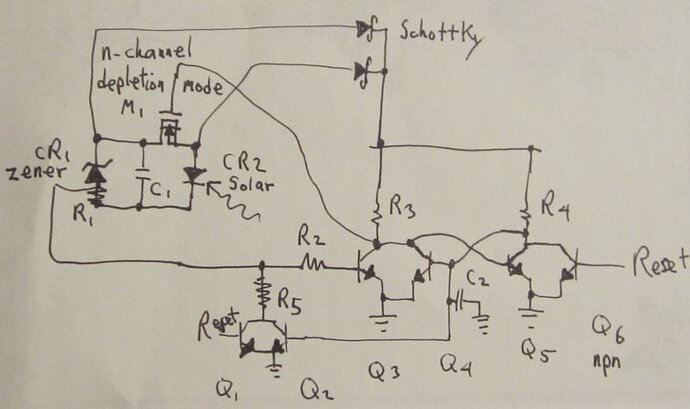 Schottky
n-channel
depletion
mode
M1
CR1
zener
C1
CR2
Solar
R1
R3
R4
R2
R5
C2
Reset
Reset
Q1
Q2
Q3
Q4
Q5
Q6
npn